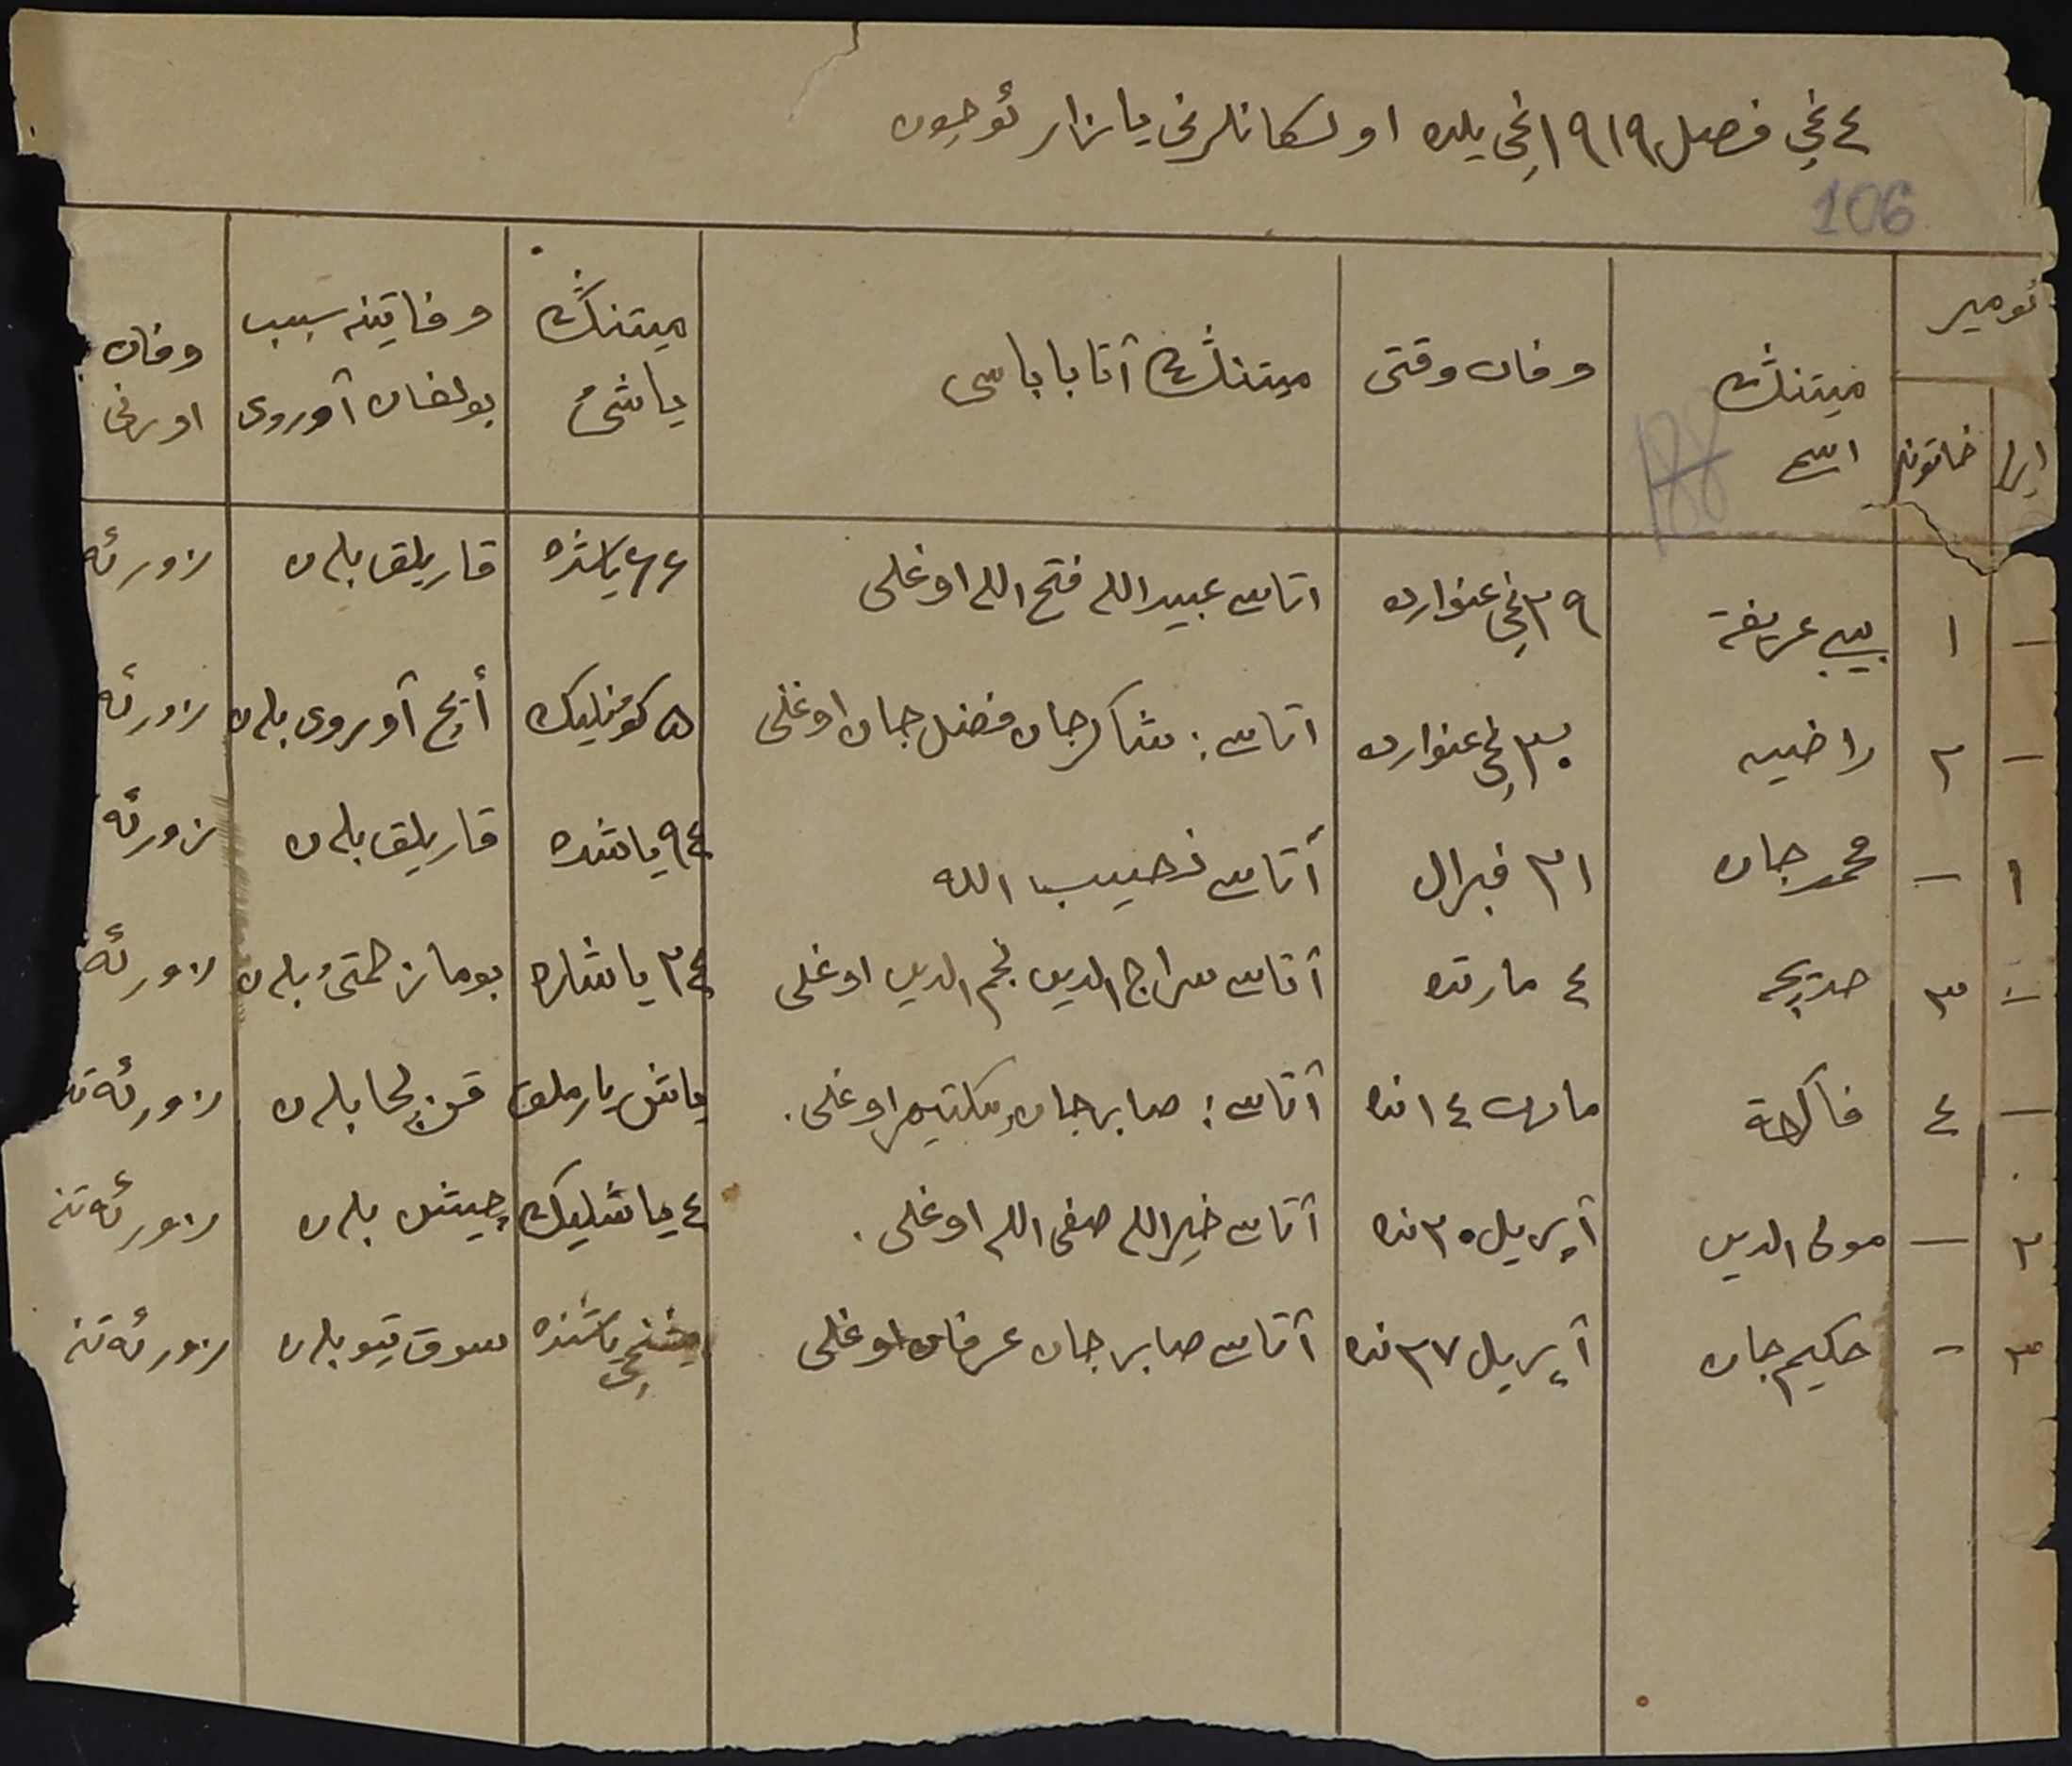 ٤ نچی فصل ١٩١٩ نچی یلده اولگانلرنی یازار ئوچون
106
نومیر
ایرلر
خاتونلر
میتنڭ
اسمی
وفات وقتی
میتنڭ آتا باباسی
میتنڭ
یاشی
وفاتینه سبب
بولغان آوروی
وفات
اورنی
— ١ بیبی عریفة ٢٩ نچی غنوارده اتاسی عبیدالله فتح الله اوغلی ٦٦ یاشده قاریلق بله ن زورئه
— ٢ راضیه ٣٠ نچی غنوارده اتاسی: شاکرجان فضل جان اوغلی ٥ کونلیک أچ آوروی بله ن زورئه
١ — محمدجان ٢١ فبرال أتاسی حبیب الله ٩٤ یاشده قاریلق بله ن زورئه
— ٣ خدیجه ٤ مارتده آتاسی سراج الدین نجم الدین اوغلی ٢٤ یاشده بله ن زورئه
— ٤ فاکهة مارت ١٤ نده آتاسی: صابرجان اوغلی. یاش یارملق بله ن زورئه ته
٢ — مولی الدین آپریل ٢٠ نده آتاسی خیرالله صفی الله اوغلی. ٤ یاشلیک چیشش بله ن زورئه تنه
٣ — حکیم جان آپریل ٢٧ نده آتاسی صابرجان عرفان اوغلی یاشنده سوق تیو بله ن زورئه تنه